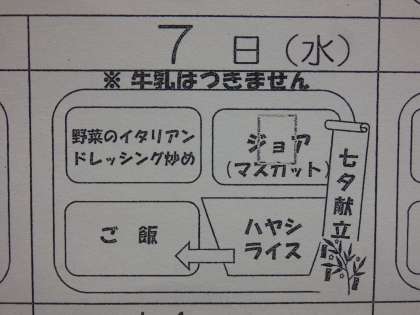 7日(水)
※ 牛乳はつきません
野菜のイタリアン
ドレッシング炒め
ジョア
(マスカット)
七夕献立
ご飯
ハヤシ
ライス